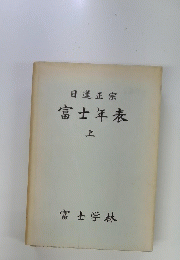 日蓮正宗
富士年表
上
富士学林